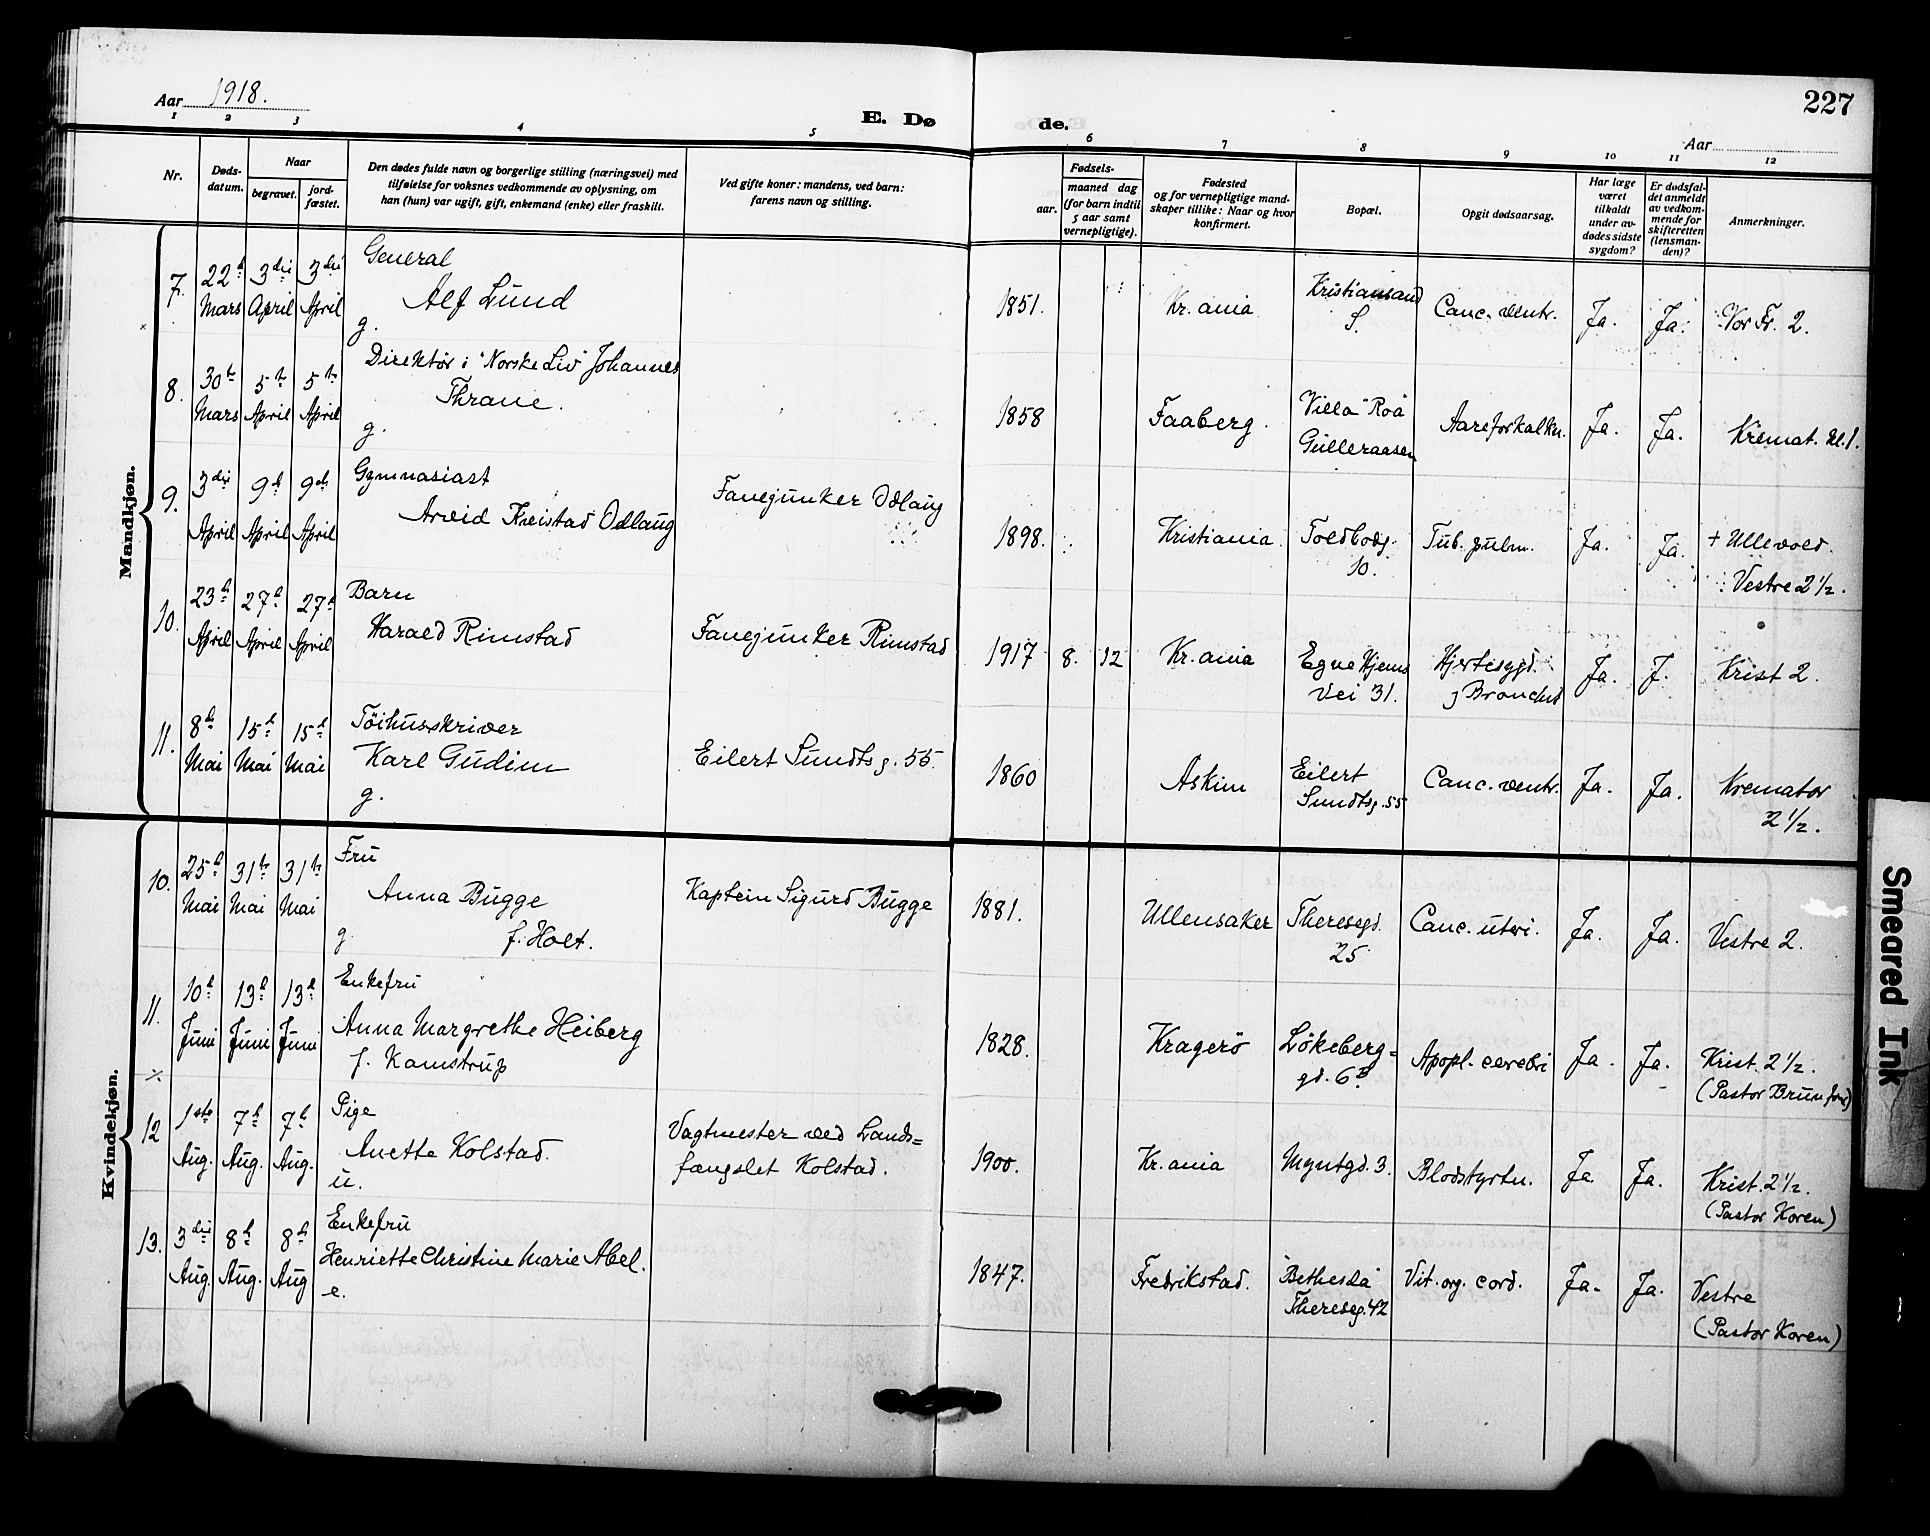 Aar 1918.
E. Døde.
Aar
227
1 2 3 4 5 6 7 8 9 10 11 12
Nr.
Døds-
datum.
Naar
begravet.
jord-
fæstet.
Den dødes fulde navn og borgerlige stilling (næringsvei) med
tilføielse for voksnes vedkommende av oplysning, om
han (hun) var ugift, gift, enkemand (enke) eller fraskilt.
Ved gifte koner: mandens, ved barn:
farens navn og stilling.
Fødsels-
aar.
maaned dag
(for barn indtil
5 aar samt
vernepligtige).
Fødested
og for vernepligtige mand-
skaper tillike: Naar og hvor
konfirmert.
Bopæl.
Opgit dødsaarsag.
Har læge
været
tilkaldt
under av-
dødes sidste
sygdom?
Er dødsfal-
det anmeldt
av vedkom-
mende for
skifteretten
(lensman-
den)?
Anmerkninger.
Mandkjøn.
7. 22d Mars 3die April 3die April
General
Alf Lund
g.
1851. Kr.ania
Kristiansand
S.
Canc. ventr. Ja. Ja. Vor Fr. 2.
8. 30te Mars 5te April 5te April
Direktør i "Norske Liv" Johannes
Thrane.
g.
1858 Faaberg.
Villa "Roa"
Gulleraasen
Aareforkalkn. Ja. Ja. Kremat. kl. 1.
9. 3die April 9d April 9de April
Gymnasiast
Arvid Kristad Odlaug
Fanejunker Odlaug
1898. Kristiania
Toldbodg.
10.
Tub. pulm. Ja. Ja.
+ Ullevold.
Vestre 2 1/2.
10. 23d April 27d April 27d April
Barn
Harald Rimstad
Fanejunker Rimstad
1917 8. 12 Kr.ania
Egne Hjems
Vei 31.
Hjertesygd.
Ja. J. Krist 2.
11. 8d Mai 15d Mai 15d Mai
Töihusskriver
Karl Gudim
g.
Eilert Sundts g. 55.
1860 Askim
Eilert
Sundtsg. 55
Canc. ventr. Ja. Ja.
Kremator
2 1/2.
Kvindekjøn.
10. 25d Mai 31te Mai 31te Mai
Fru
Anna Bugge
g. f. Holt.
Kaptein Sigurd Bugge
1881. Ullensaker
Theresegd.
25
Canc. uteri. Ja. Ja. Vestre 2.
11. 10d Juni 13d Juni 13d Juni
Enkefru
Anna Margrethe Heiberg
f. Kamstrup
1828. Kragerö
Lökeberg=
gd. 6B
Apopl. cerebri Ja. Ja.
Krist. 2 1/2.
(Pastor Brun)
12 1ste Aug. 7d Aug. 7d Aug.
Pige
Anette Kolstad.
u.
Vagtmester ved Lands=
fængslet Kolstad.
1900. Kr.ania Myntgd. 3. Blodstyrtn. Ja. Ja.
Krist. 2 1/2.
(Pastor Koren)
13. 3die Aug. 8d Aug. 8d Aug
Enkefru
Henriette Christine Marie Abel.
e.
1847. Fredrikstad.
"Bethesda"
Thereseg. 42
Vit. org. cord. Ja. Ja.
Vestre
(Pastor Koren)
Smeared Ink